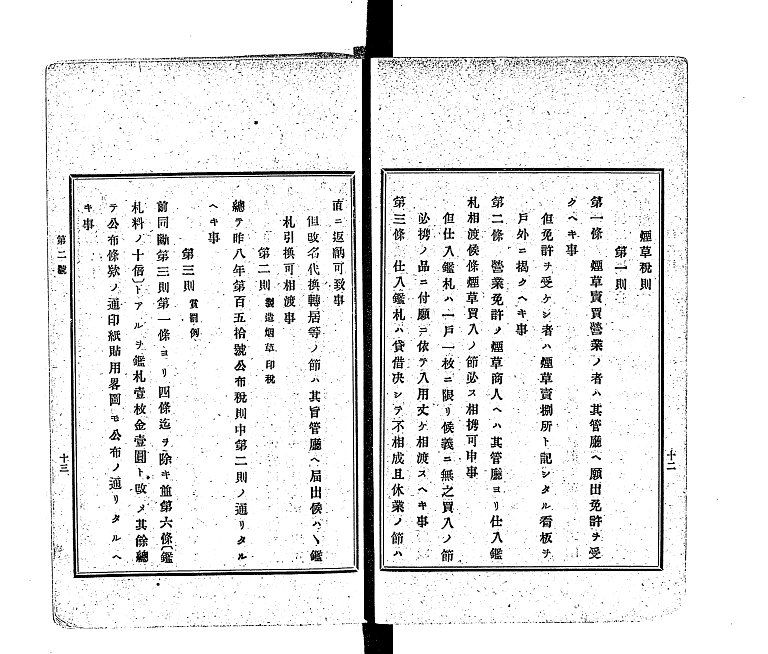 煙草税則
第一則
第一條　煙草賣買營業ノ者ハ其管廳ヘ願出免許ヲ受
クヘキ事
但免許ヲ受ケシ者ハ煙草賣捌所ト記シタル看板ヲ
戶外ニ揭クヘキ事
第二條　營業免許ノ煙草商人ヘハ其管廳ヨリ仕入鑑
札相渡候條煙草買入ノ節必ス相携可申事
但仕入鑑札ハ一戶一枚ニ限リ候義ニ無之買入ノ節
必携ノ品ニ付願ニ依テ入用丈ケ相渡スヘキ事
第三條　仕入鑑札ハ貸借決シテ不相成且休業ノ節ハ
十二
直ニ返納可致事
但改名代換轉居等ノ節ハ其旨管廳ヘ屆出候ハヽ鑑
札引換可相渡事
第二則　製造烟草印稅
總テ昨八年第百五拾號公布稅則中第二則ノ通リタル
ヘキ事
第三則　賞罰例
前同斷第三則第一條ヨリ四條迄ヲ除キ並第六條〔鑑
札料ノ十倍〕トアルヲ鑑札壹枚金壹圓ト改メ其餘總
テ公布條欵ノ通印紙貼用畧圖モ公布ノ通リタルヘ
キ事
第二號
十三